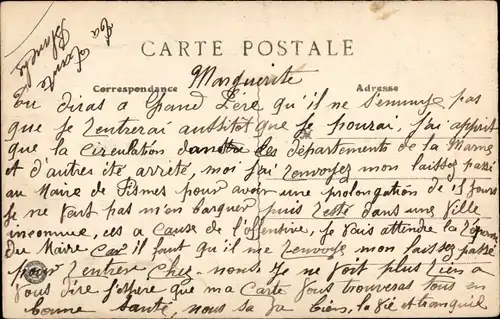 Ta
Tante
Blanche
CARTE POSTALE
Correspondance
Adresse
Marguerite
tu diras a Grand Père qu'il ne s'ennuye pas
que je Rentrerai aussitot que je pourai, j'ai apprit
que la circulation dans les départements de la Marne
et d'autres ité arrité, moi j'ai Renvoyez mon laissez passé
au Maire de Fismes pour avoir une prolongation de 15 jours
je ne vait pas m'en barquer puis Resté dans une Ville
inconnue, ces a Cause de l'offensive, je vais attendre la Réponse
du Maire Car il faut qu'il me Renvoye mon laissez passé
pour Rentrer Chez nous. Je ne voit plus Rien a
Vous dire j'espère que ma Carte Vous trouveras tous en
bonne Santé, nous sa va bien, la vie et tranquil